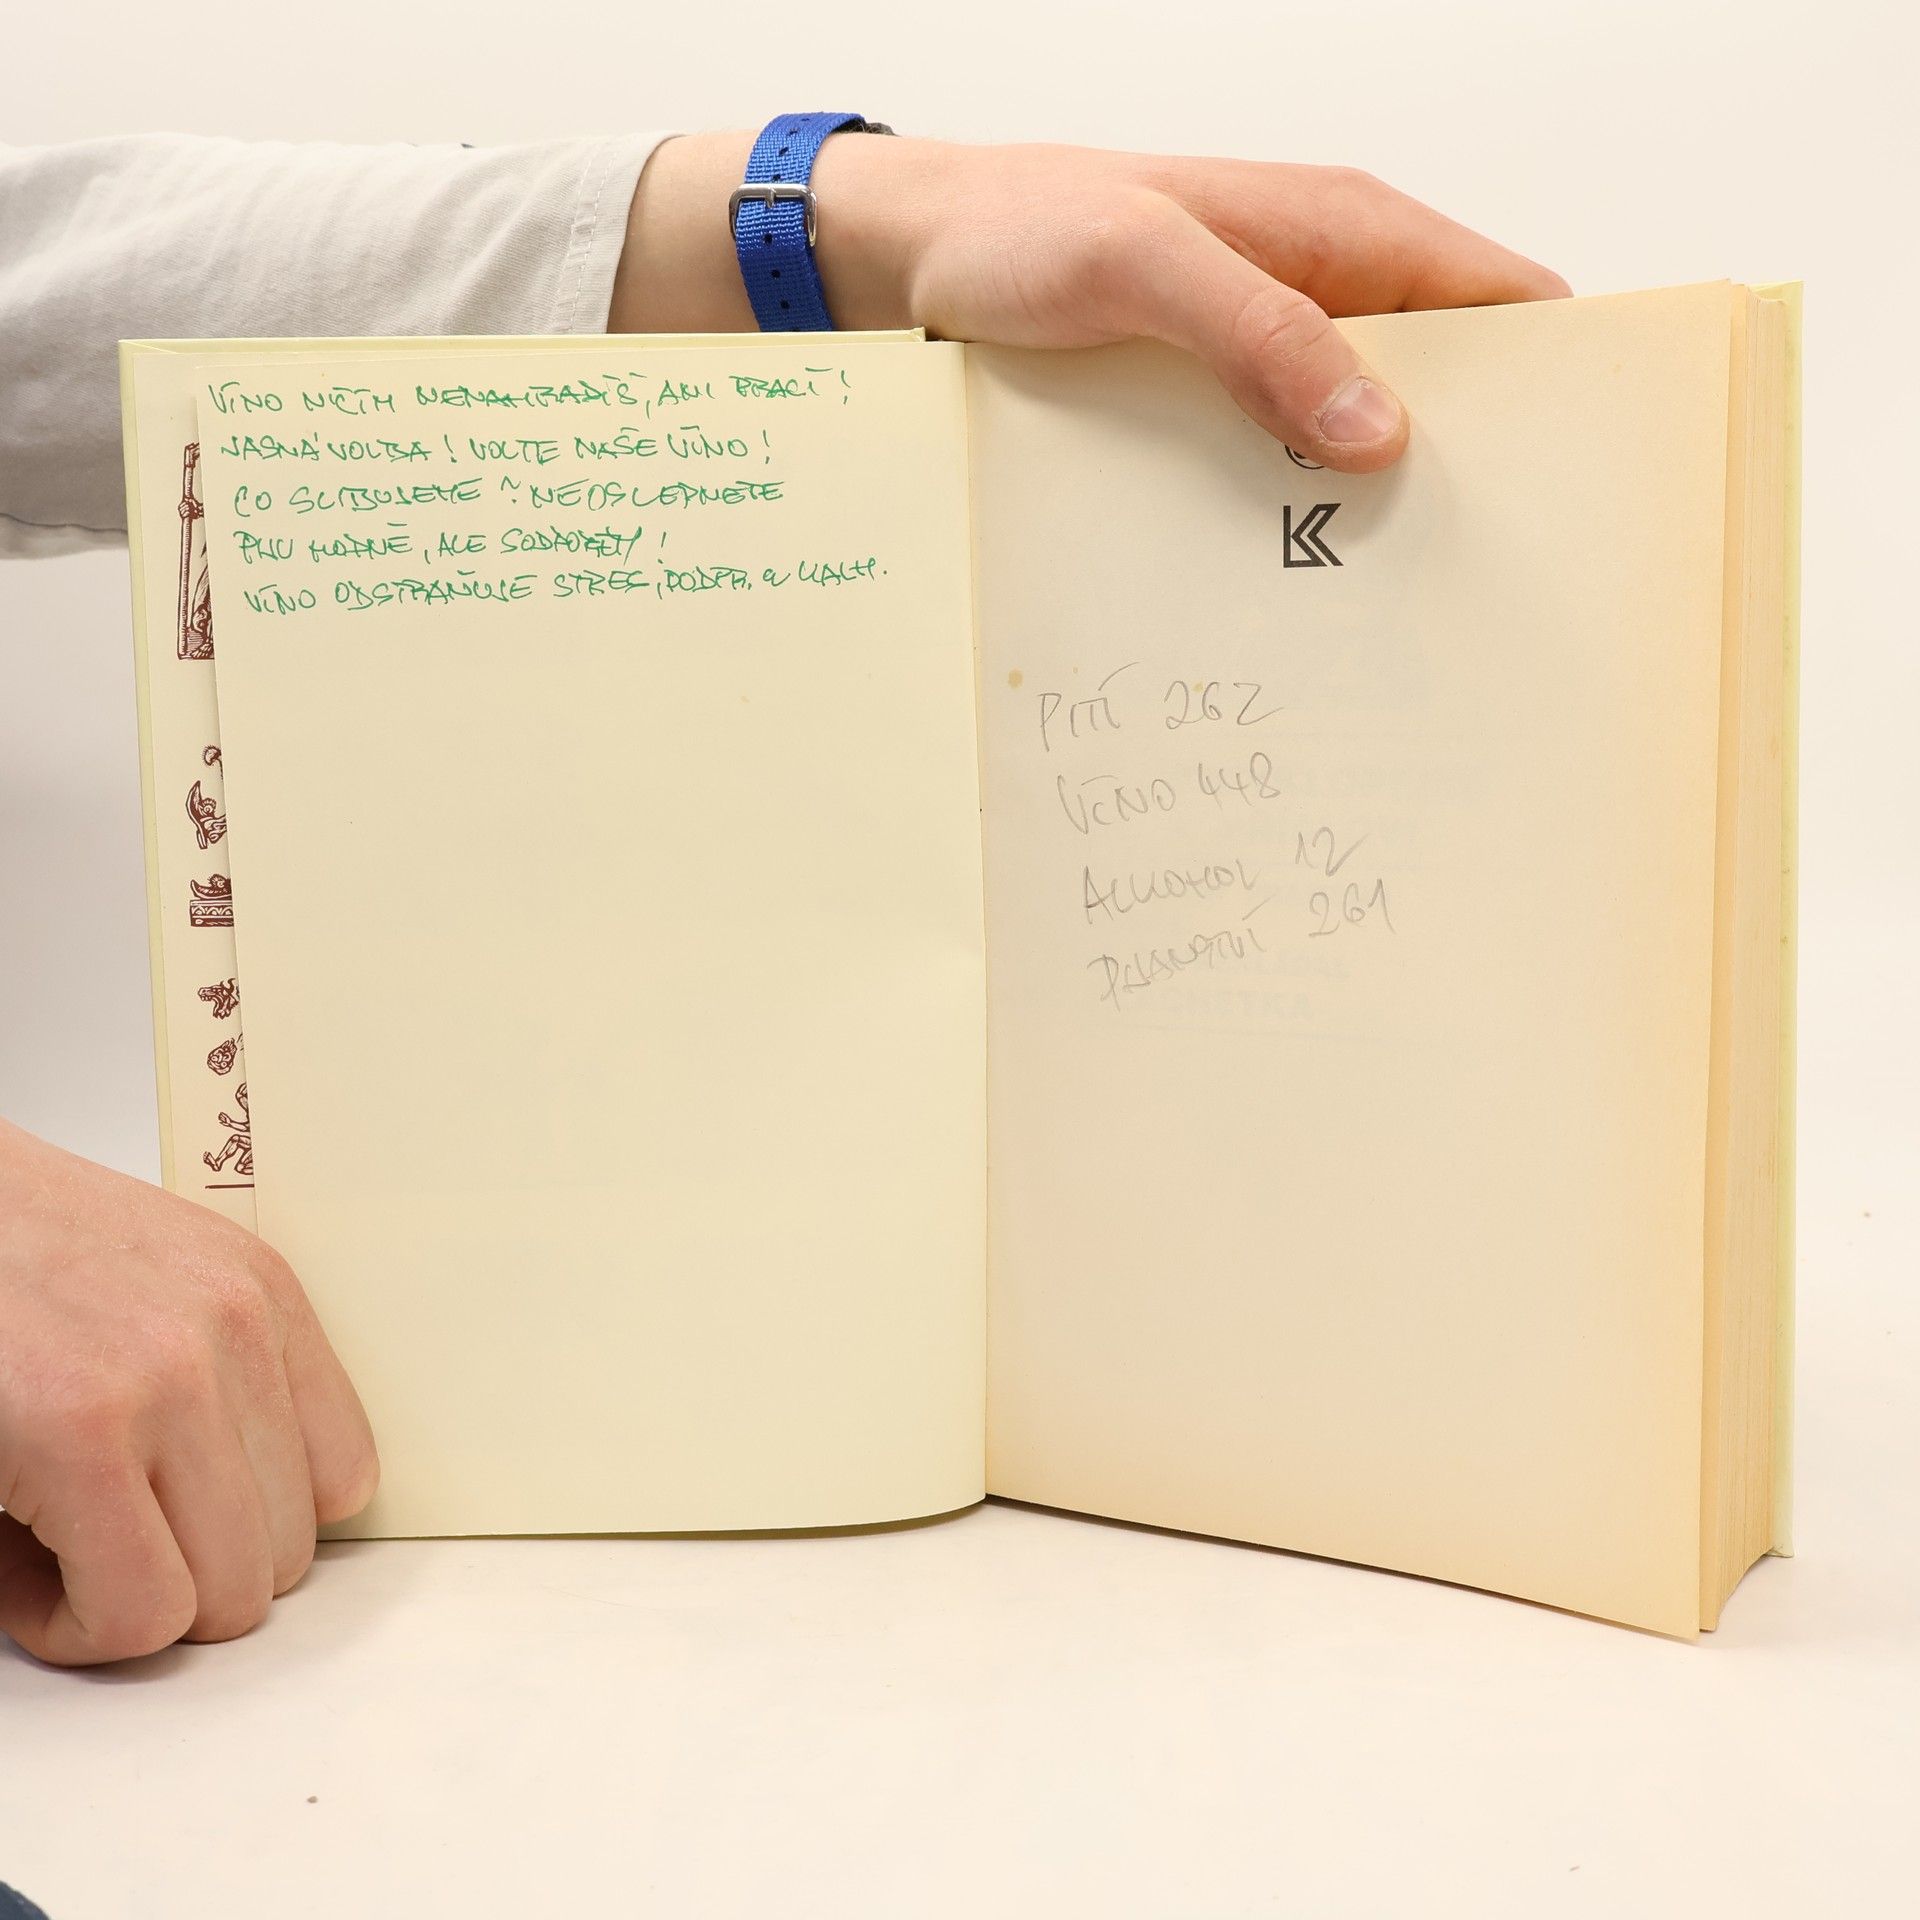 VÍNO NIČÍM NENAHRADÍŠ, ANI PRACÍ!
JASNÁ VOLBA! VOLTE NAŠE VÍNO!
CO SLIBUJEME? NEOSLEPNETE
HODNĚ, ALE
VÍNO ODSTRAŇUJE STRES, PODPR. a
LK
PITÍ 262
VÍNO 448
ALKOHOL 12
PIJANSTVÍ 261